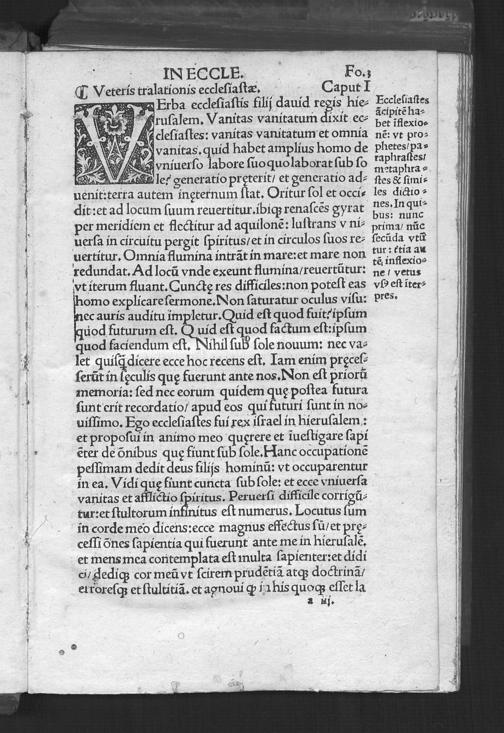 IN ECCLE. Fo.3
¶ Veteris tralationis ecclesiastæ. Caput I
VErba ecclesiastis filij dauid regis hie-
rusalem. Vanitas vanitatum dixit ec-
clesiastes: vanitas vanitatum et omnia
vanitas. quid habet amplius homo de
vniuerso labore suo quo laborat sub so
le? generatio pręterit/ et generatio ad-
uenit: terra autem inęternum stat. Oritur sol et occi-
dit: et ad locum suum reuertitur. ibiqꝫ renascẽs gyrat
per meridiem et flectitur ad aquilonẽ: lustrans v ni-
uersa in circuitu pergit spiritus/ et in circulos suos re-
uertitur. Omnia flumina intrãt in mare: et mare non
redundat. Ad locũ vnde exeunt flumina/ reuertũtur:
vt iterum fluant. Cunctę res difficiles: non potest eas
homo explicare sermone. Non saturatur oculus visu:
nec auris auditu impletur. Quid est quod fuit? ipsum
quod futurum est. Q uid est quod factum est: ipsum
quod faciendum est. Nihil sub sole nouum: nec va-
let quisqꝫ dicere ecce hoc recens est. Iam enim pręces-
serũt in sęculis quę fuerunt ante nos. Non est priorũ
memoria: sed nec eorum quidem quę postea futura
sunt erit recordatio/ apud eos qui futuri sunt in no-
uissimo. Ego ecclesiastes fui rex israel in hierusalem:
et proposui in animo meo quęrere et iuestigare sapi
ẽter de õnibus quę fiunt sub sole. Hanc occupationẽ
pessimam dedit deus filijs hominũ: vt occuparentur
in ea. Vidi quę fiunt cuncta sub sole: et ecce vniuersa
vanitas et afflictio spiritus. Peruersi difficile corrigũ-
tur: et stultorum infinitus est numerus. Locutus sum
in corde meo dicens: ecce magnus effectus sũ/ et prę-
cessi õnes sapientia qui fuerunt ante me in hierusalẽ.
et mens mea contemplata est multa sapienter: et didi
ci/ dediqꝫ cor meũ vt scirem prudẽtiã atqꝫ doctrinã/
erroresqꝫ et stultitiã. et agnoui qꝫ in his quoqꝫ esset la
a iij.
Ecclesiastes
ãcipitẽ ha-
bet iflexio-
nẽ: vt pro-
phetes/pa-
raphrastes/
metaphra-
stes & simi-
les dictio-
nes. In qui-
bus: nunc
prima/ nũc
secũda vtũ
tur: ẽtia au
tẽ inflexio-
ne/ vetus
vsꝰ est iter-
pres.